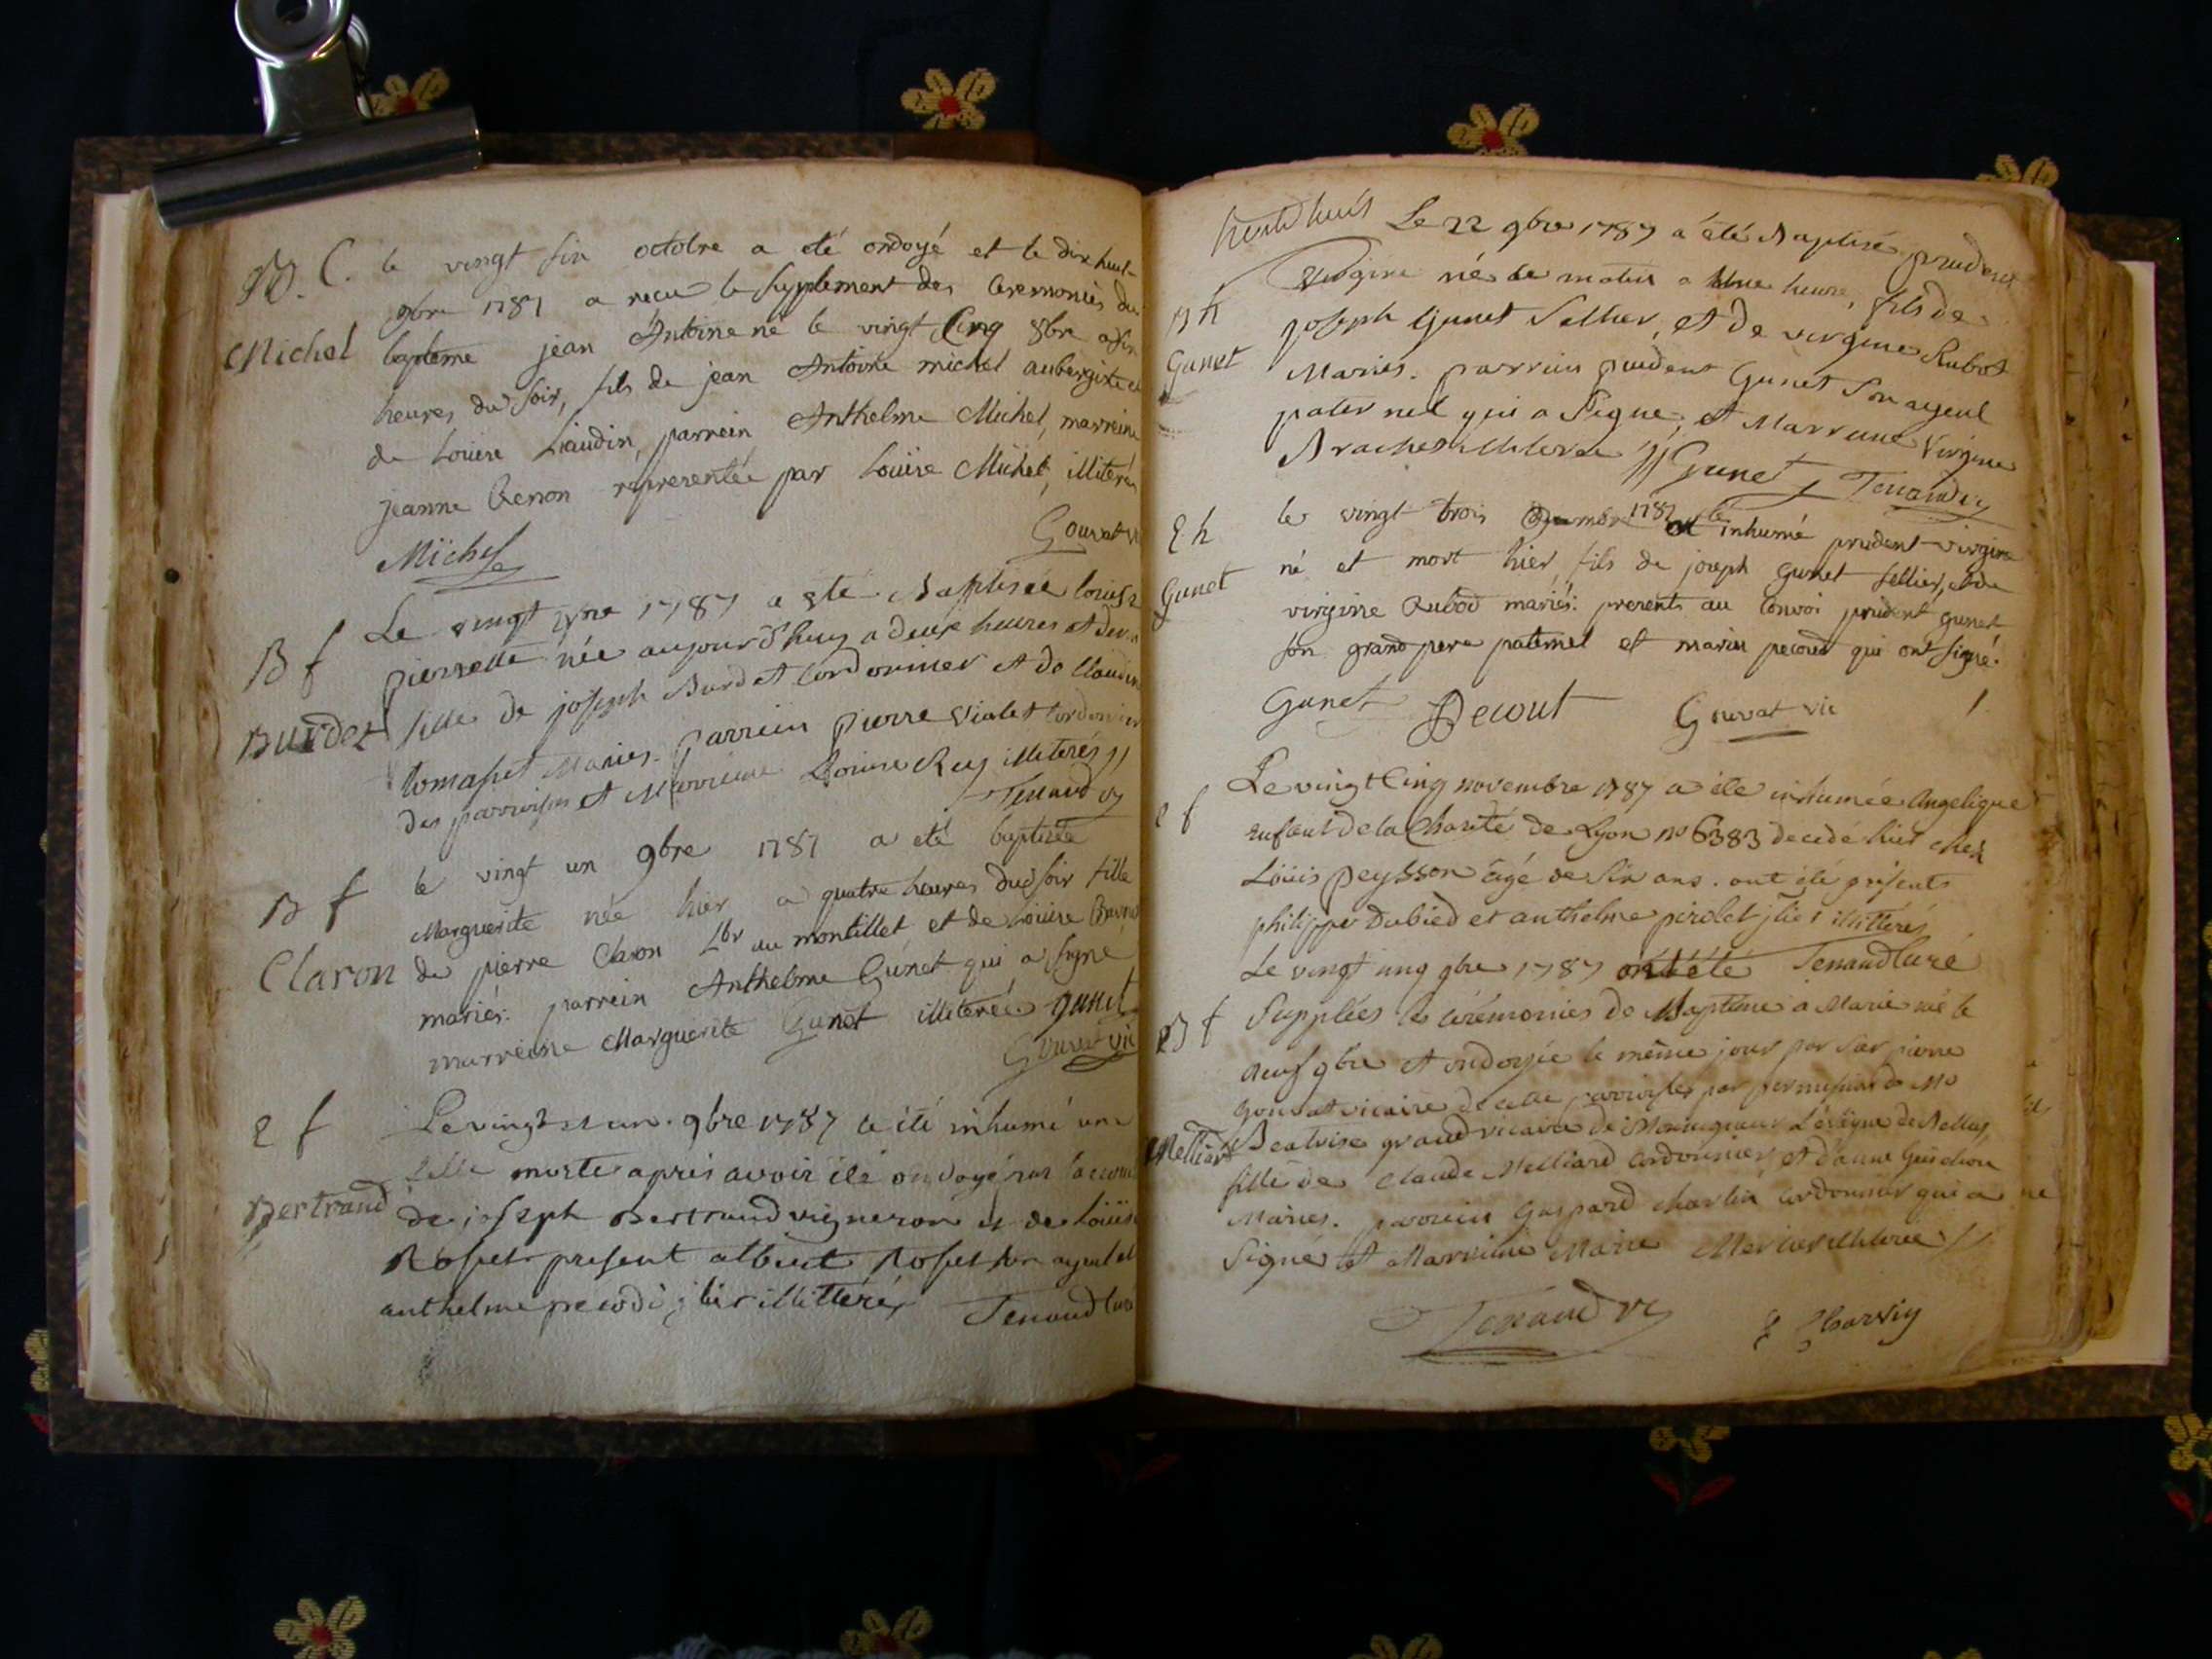 B. C.
Michel
le vingt six octobre a été ondoyé et le dix huit
9bre 1787 a reçu le supplement des ceremonies du
baptême jean Antoine né le vingt Cinq 8bre a six
heures du soir, fils de jean Antoine michel aubergiste et
de Louise Liaudin, parrein Anthelme Michel, marreine
jeanne Benon representée par Louise Michel, illiterés
Michel Gouvat vi
B f
Burdet
Le vingt 9bre 1787 a eté Baptisée louise
pierrette née aujourd'huy a deux heures et
fille de joseph Burdet Cordonnier et de Claudine
tomasset Mariés. parrein pierre violet Cordonnier
des parroisses et Marreine Louise Rey illiterés
Tenaud
B f
Claron
le vingt un 9bre 1787 a eté baptisée
Marguerite née hier a quatre heures du soir fille
de pierre Claron Lbr au montillet et de Louise
mariés. parrein Anthelme Gunet qui a signé
marreine Marguerite Gunet illiterée gunet
Gouvat vic
E f
Bertrand
Le vingt et un 9bre 1787 a été inhumé une
fille morte après avoir été ondoyé par
de joseph Bertrand vigneron et de Loüise
Rosset present albert Rosset son ayeul et
anthelme illittérés Tenaud curé
trente huit
B h
Gunet
Le 22 9bre 1787 a été Baptisé prudent
Virgine né ce matin a Une heure, fils de
joseph Gunet Sellier, et de virgine Rubot
Mariés. parrein prudent Gunet Son ayeul
paternel qui a Signé, et Marreine Virgine
illiterée Gunet Tenaud
E h
Gunet
le vingt trois 1787 a été inhumé prudent virgine
né et mort hier fils de joseph gunet sellier, et de
virginie Rubod mariés. presents au convoi prudent gunet
son grand pere paternel et marin pecoud qui ont signé.
Gunet Pecout Gouvat vic
e f
Le vingt Cinq novembre 1787 a été inhumée Angelique
enfant de la Charité de Lyon no 6383 decedé hier chez
Loüis peysson âgé de six ans. ont été présents
philippe Dubied et anthelme pirolet illittérés
Tenaud Curé
B f
Melliard
Le vingt 9bre 1787 ont été
Supplées les cérémonies de Baptême a Marie née le
neuf 9bre et ondoyée le même jour par Sr pierre
Gouvat vicaire de cette parroisse par permission de Mr
Beatrise grand vicaire de Monseigneur L'évêque de Belley
fille de Claude Melliard Cordonnier et d'anne Guichon
Mariés. parrein Gaspard charlin cordonnier qui a
Signé et Marreine Marie Mercier illiterée
Tenaud